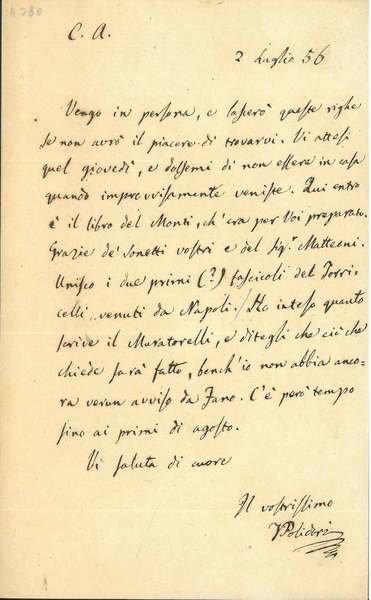 4280
C. A.
2 Luglio 56
Vengo in persona, e lascerò queste righe
se non avrò il piacere di trovarvi. Vi attesi
quel giovedì, e dolsemi di non essere in casa
quando improvvisamente veniste. Qui entro
è il libro del Monti, ch'era per Voi preparato.
Grazie de' sonetti vostri e del Sig.r Matteoni.
Unisco i due primi (?) fascicoli del Torri-
celli, venuti da Napoli. Ho inteso quanto
scrive il Muratorelli, e ditegli che ciò che
chiede sarà fatto, bench'io non abbia anco-
ra verun avviso da Fano. C'è però tempo
sino ai primi di agosto.
Vi saluta di cuore
Il vostrissimo
Polidori